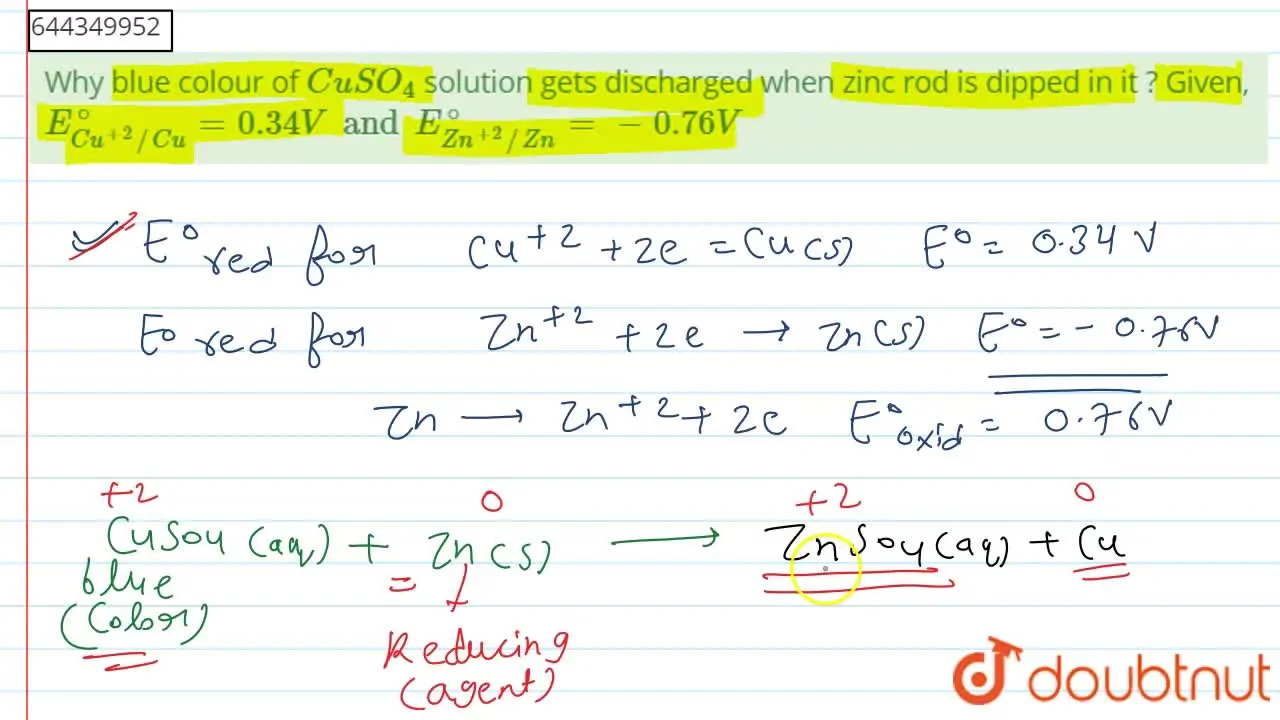 644349952
Why blue colour of CuSO₄ solution gets discharged when zinc rod is dipped in it ? Given,
E°Cu⁺²/Cu = 0.34V and E°Zn⁺²/Zn = − 0.76V
E° red for Cu⁺² + 2e = Cu(s) E° = 0.34 V
E° red for Zn⁺² + 2e → Zn(s) E° = - 0.76V
Zn → Zn⁺² + 2e E° oxid = 0.76V
+2 0 +2 0
CuSO4 (aq) + Zn(s) → ZnSO4(aq) + Cu
blue
(Color)
Reducing
(agent)
doubtnut